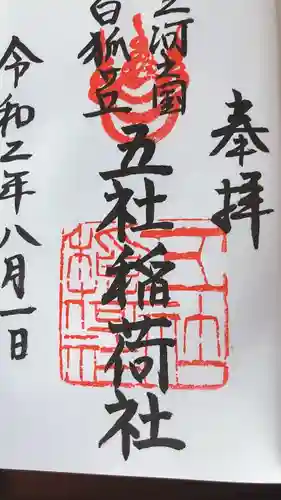 奉拝
三河国
白狐の丘
五社稲荷社
令和二年八月一日